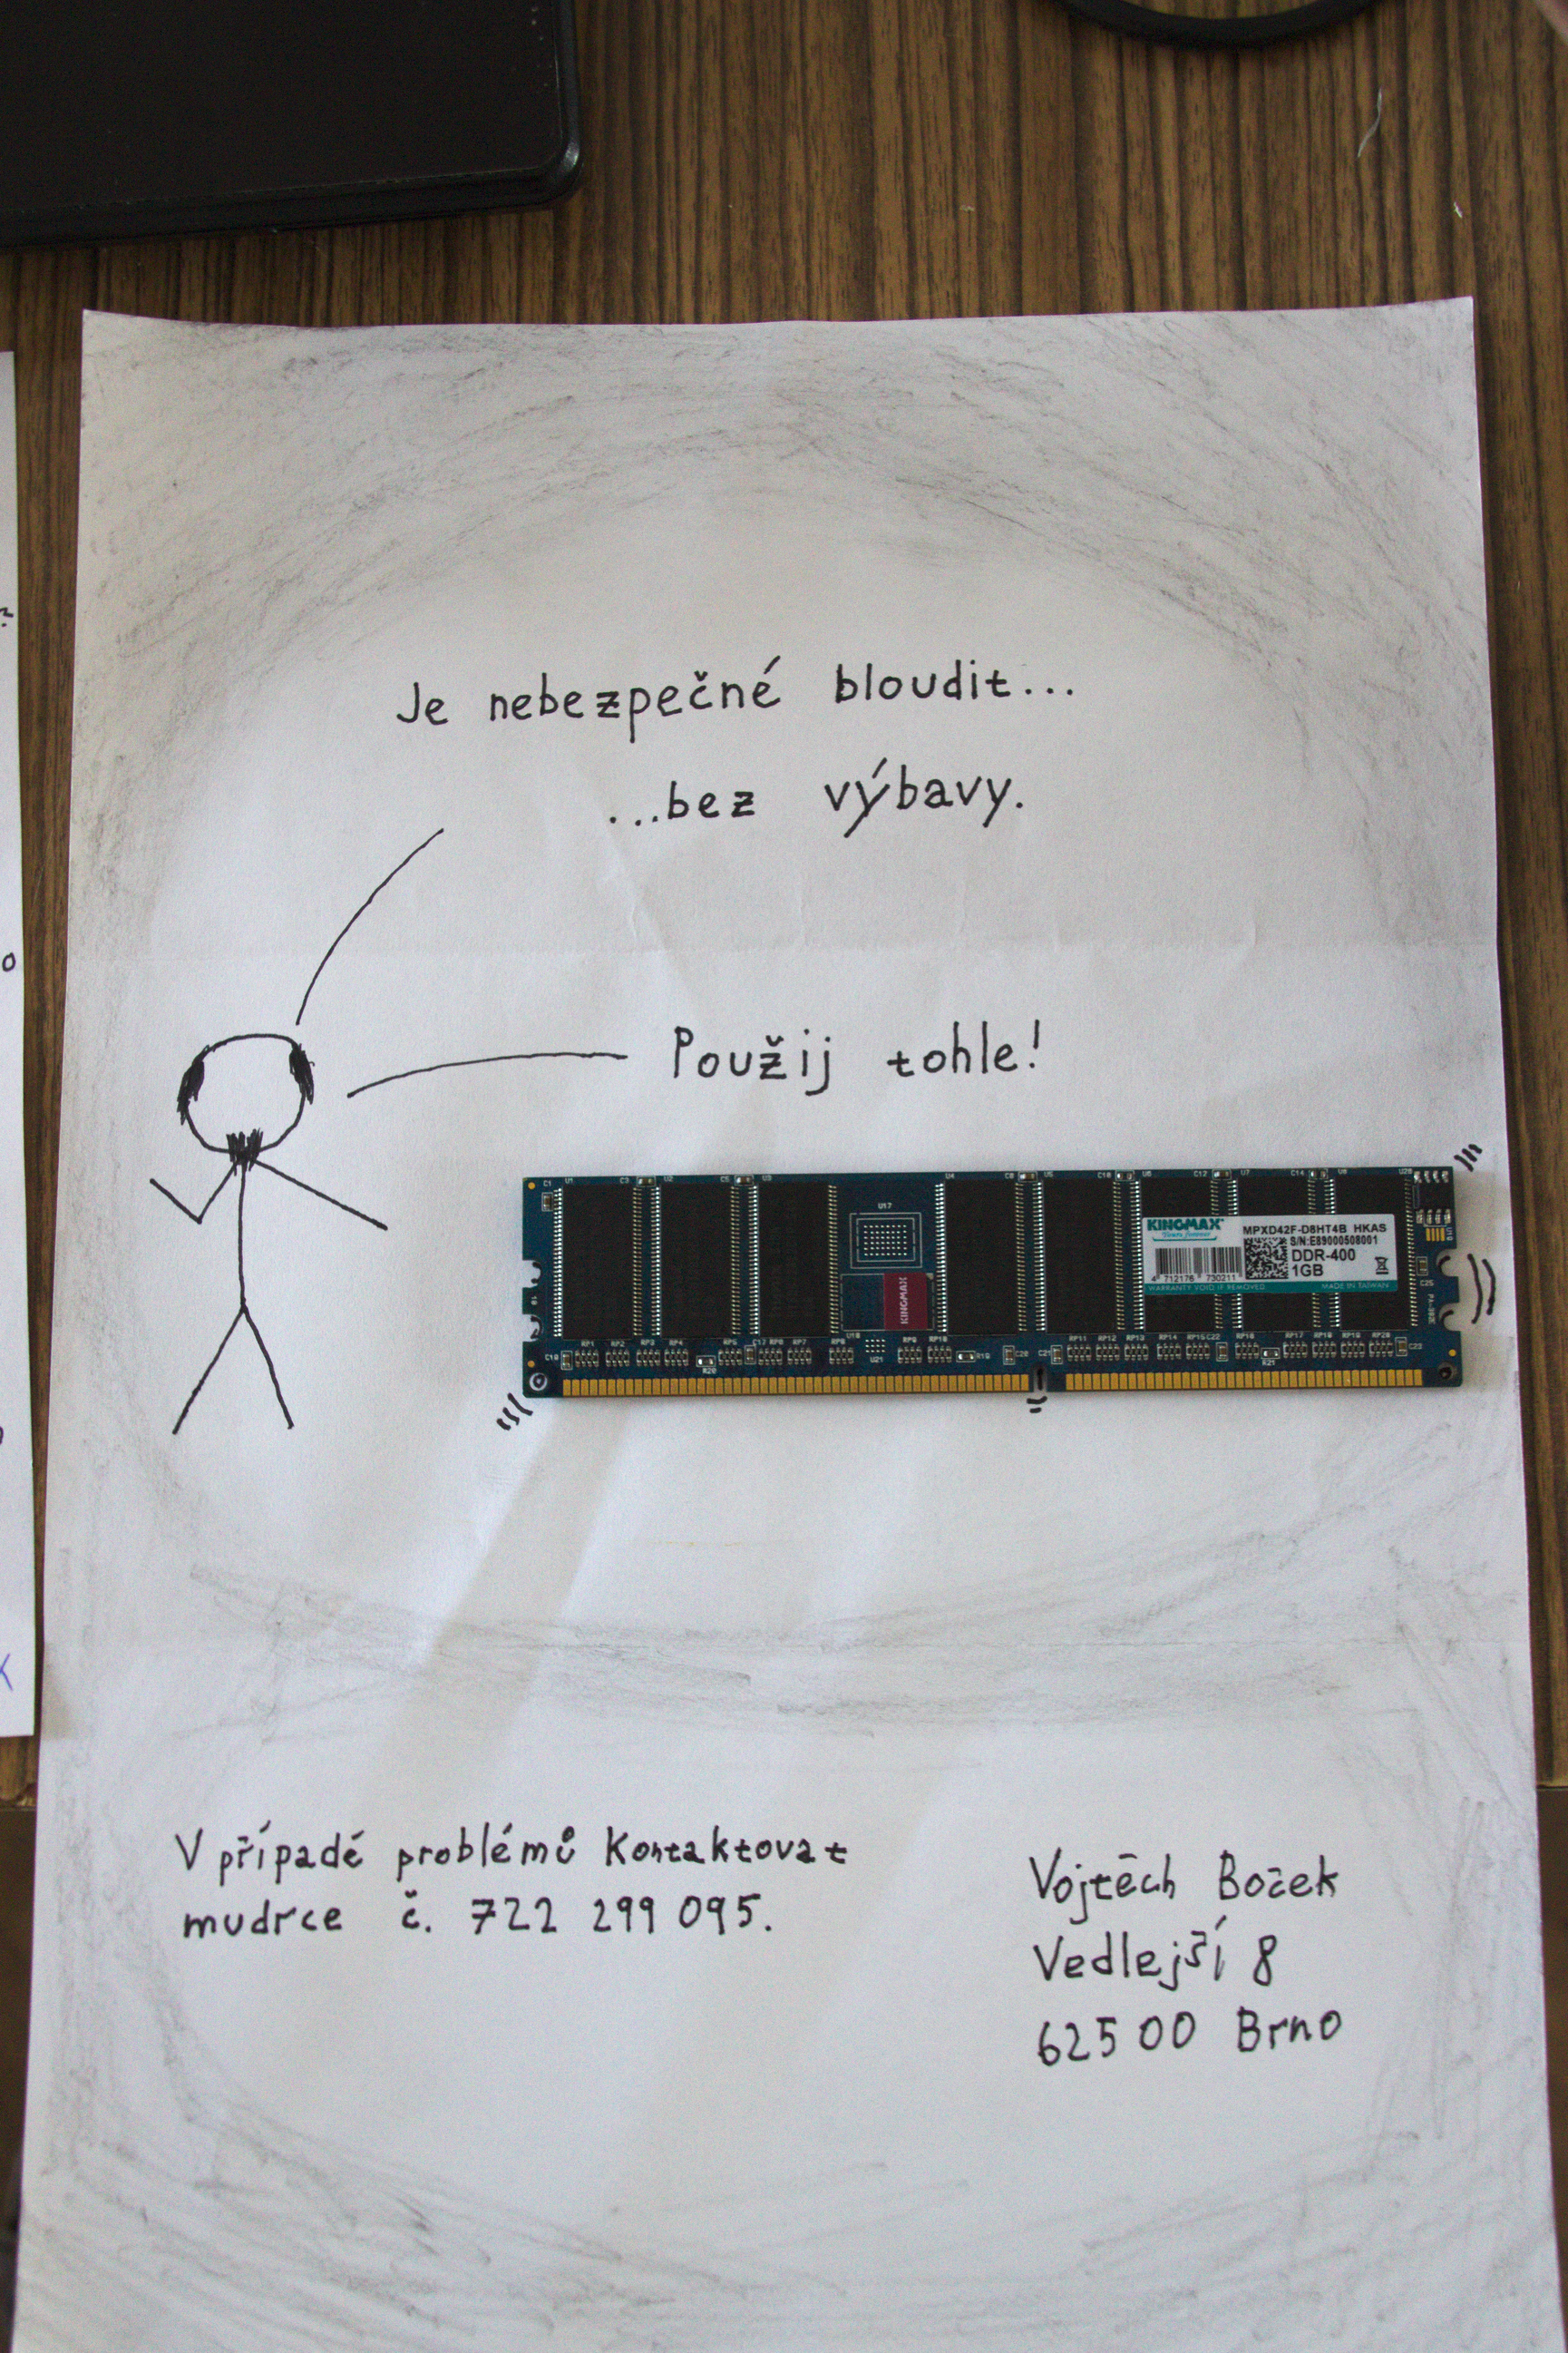 Je nebezpečné bloudit...
...bez výbavy.
Použij tohle!
KINGMAX
MPXD42F-D8HT4B HKAS
S/N:E89000508001
DDR-400
1GB
4 712176 730211
WARRANTY VOID IF REMOVED
MADE IN TAIWAN
KINGMAX
V případě problémů Kontaktovat
mudrce č. 722 299 095.
Vojtěch Boček
Vedlejší 8
62500 Brno